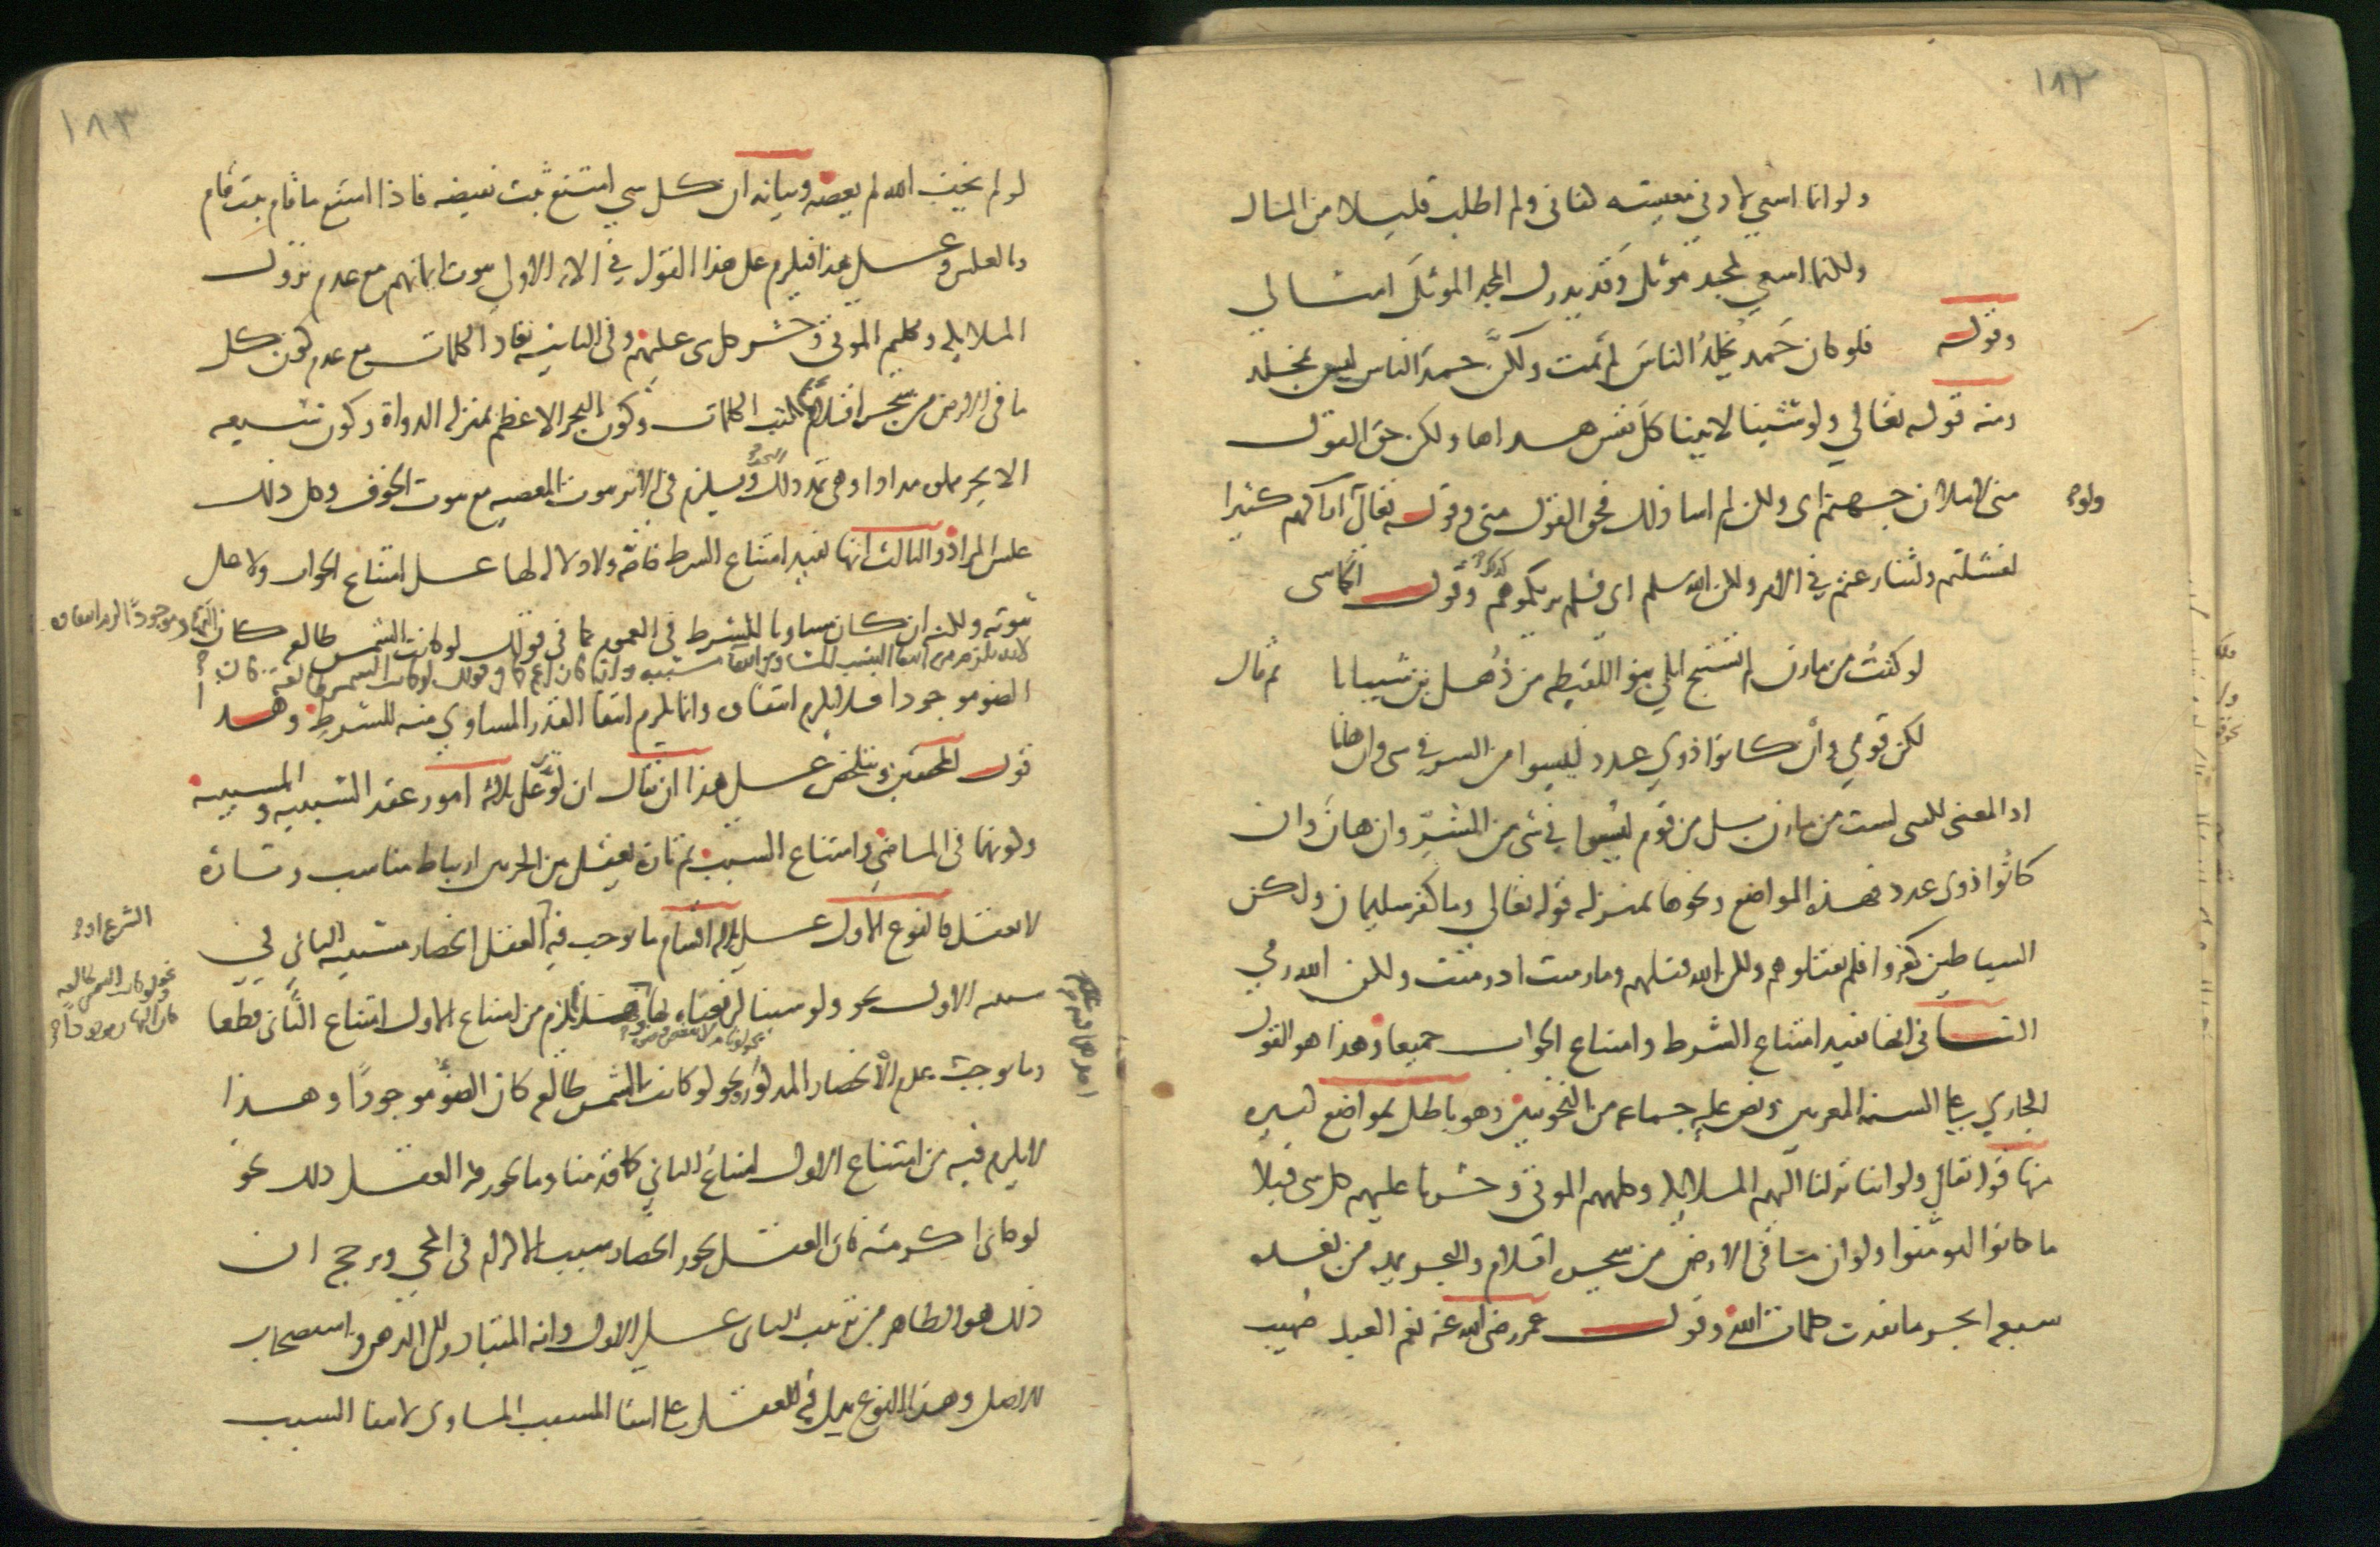 ١٨٢
ولو انما اسعى لادنى معيشة كفانى ولم اطلب قليلا من المال
ولكنما اسعى لمجد موثل وقد يدرك المجد الموثل امثالي
وقوله فلو كان حمد يخلد الناس لم تمت ولكن حمد الناس ليس بمخلد
ومنه قوله تعالي ولو شئنا لاتينا كل نفس هداها ولكن حق القول
منى لاملان جهنم اى ولكن لم اشا ذلك فحق القول منى وقوله تعالى ولو اراكهم كثيرا
لفشلتم ولتنازعتم في الامر ولكن الله سلم اى فلم يريكموهم كذلك وقول الحماسى
لو كنت من مازن لم تستبح ابلي بنو اللقيطه من ذهل بن شيبانا ثم قال
لكن قومي وان كانوا ذوي عدد ليسوا من الشر في شى وان هانا
اذ المعنى لكنى لست من مازن بل من قوم ليسوا في شى من الشر وان هان وان
كانوا ذوى عدد فهذه المواضع ونحوها بمنزله قوله تعالى وما كفر سليمان ولكن
الشياطين كفروا فلم تقتلوهم ولكن الله قتلهم وما رميت اذ رميت ولكن الله رمي
الثانى انها تفيد امتناع الشرط وامتناع الجواب جميعا وهذا هو القول
الجاري على السنة المعربين ونص عليه جماعه من النحويين وهو باطل بمواضع كثيره
منها قوله تعالى ولو اننا نزلنا اليهم الملائكة وكلمهم الموتى وحشرنا عليهم كل شى قبلا
ما كانوا ليومنوا ولو ان ما فى الارض من شجرة اقلام والبحر يمده من بعده
سبعه ابحر ما نفدت كلمات الله وقول عمر رضى الله عنه نعم العبد صهيب
١٨٣
لو لم يخف الله لم يعصه وبيانه ان كل شى امتنع ثبت نقيضه فاذا امتنع ما قام ثبت قام
وبالعكس وعلى هذا فيلزم على هذا القول في الايه الاولى ثبوت ايمانهم مع عدم نزول
الملائكة وتكليم الموتى وحشر كل شى عليهم وفى الثانيه نفاد الكلمات مع عدم كون كل
ما فى الارض من شجرة اقلام تكتب الكلمات وكون البحر الاعظم بمنزله الدواة وكون السبعه
الابحر مملوة مدادا وهى تمد ذلك البحر ويلزم فى الاثر ثبوت المعصيه مع ثبوت الخوف وكل ذلك
عكس المراد والثالث انها تفيد امتناع الشرط خاصة ولا دلاله لها على امتناع الجواب ولا على
ثبوته ولكنه ان كان مساويا للشرط فى العموم كما فى قولك لو كانت الشمس طالعه كان النهار موجودا لزم انتفاوه
لانه يلزم من انتفا السبب المساوى انتفا مسببه وان كان اعم كما فى قولك لو كانت الشمس طالعة كان
الضو موجودا فلا يلزم انتفاوه وانما يلزم انتفا القدر المساوي منه للشرط وهذا
قول المحققين ويتلخص على هذا ان يقال ان لو تدل على ثلاثة امور عقد السببيه والمسببيه
وكونهما فى الماضى وامتناع السبب ثم تارة يعقل بين الجزءين ارتباط مناسب وتارة
لا يعقل فالنوع الاول على ثلاثة اقسام ما يوجب فيه الشرع او العقل انحصار مسببيه الثاني في
سببيه الاول نحو ولو شئنا لرفعناه بها ونحو لو كانت الشمس طالعه كان النهار موجودا وهذا يلزم من امتناع الاول امتناع الثانى قطعا
وما يوجب عدم الانحصار المذكور نحو لو كانت الشمس طالعه كان الضوء موجودا وهذا
لا يلزم فيه من امتناع الاول امتناع الثاني كما قدمنا وما يجوز فيه العقل ذلك نحو
لو جانى اكرمته فان العقل يجوز انحصار سبب الاكرام فى المجي ويرجح ان
ذلك هو الظاهر من ترتيب الثانى على الاول وانه المتبادر الى الذهن واستصحاب
الاصل وهذا النوع يدل فيه العقل على انتفا المسبب المساوى لانتفا السبب